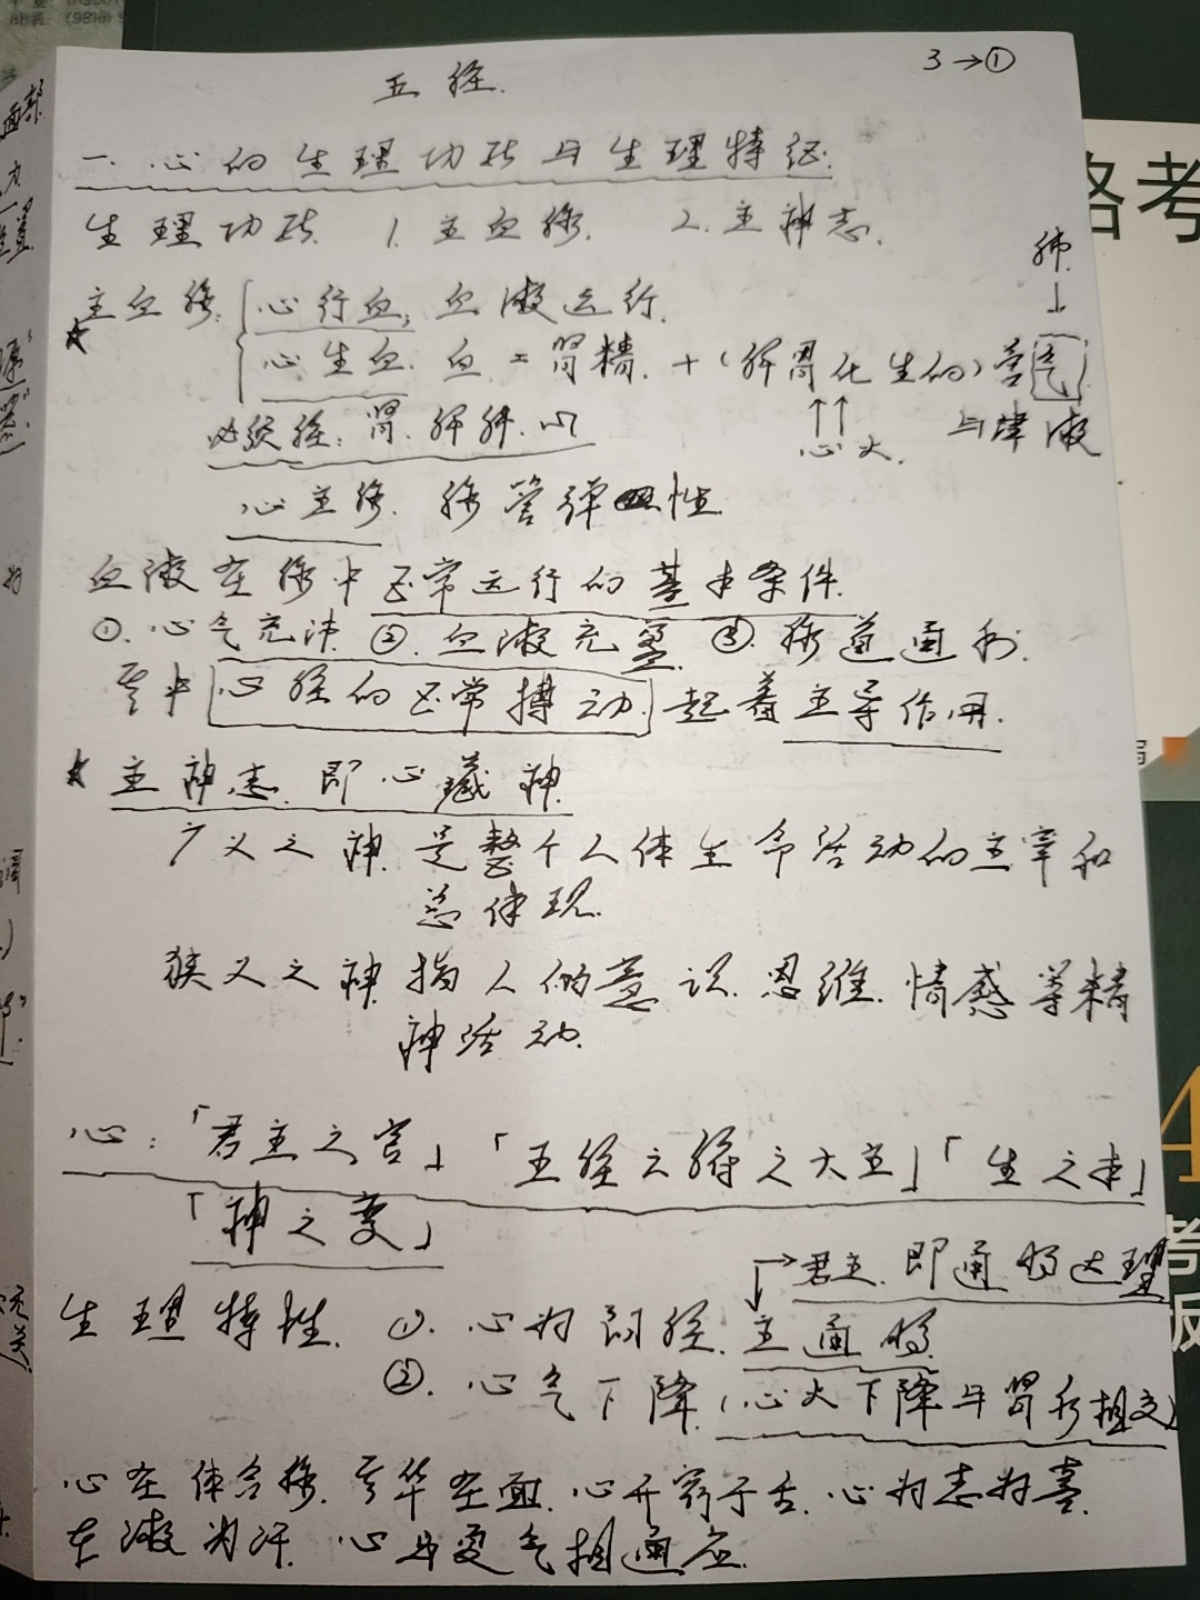 3→①
五脏.
一.心的生理功能与生理特征.
生理功能 1.主血脉. 2.主神志.
肺.
↓
主血脉: 心行血; 血液运行.
★
心生血. 血=肾精.+(脾胃化生的)营气
必须经: 肾.脾肺.心 ↑↑ 与津液
心火.
心主脉. 脉管弹性
血液在脉中正常运行的基本条件.
①.心气充沛 ②.血液充盈. ③.脉道通利.
其中心脏的正常搏动.起着主导作用.
★ 主神志.即心藏神.
广义之神.是整个人体生命活动的主宰和
总体现.
狭义之神.指人的意识.思维.情感等精
神活动.
心:「君主之官」「五脏六腑之大主」「生之本」
「神之变」
→君主.即通明达理
↓
生理特性. ①.心为阳脏.主通明.
②.心气下降.(心火下降与肾水相交)
心在体合脉.其华在面.心开窍于舌.心为志为喜.
在液为汗.心与夏气相通应.
面部
格考
4